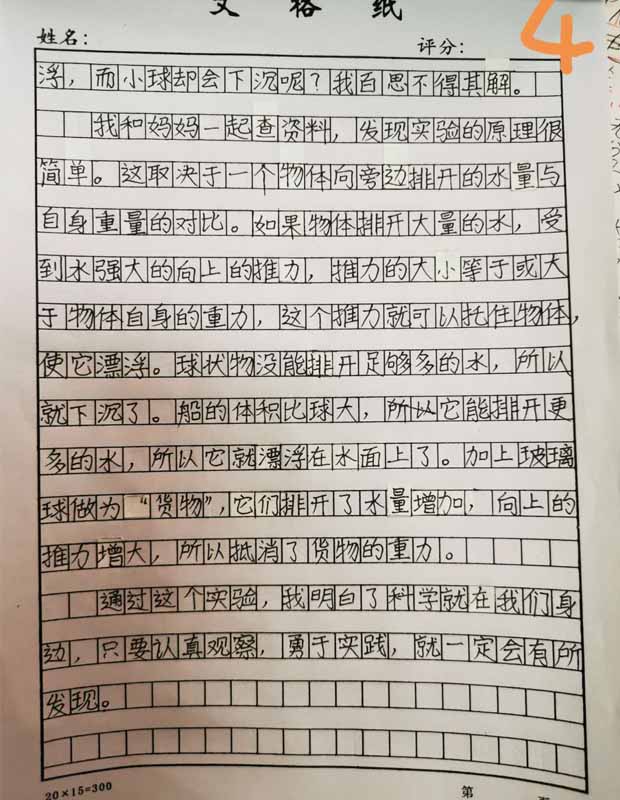 文格纸
4
姓名：
评分：
浮，而小球却会下沉呢？我百思不得其解。
我和妈妈一起查资料，发现实验的原理很
简单。这取决于一个物体向旁边排开的水量与
自身重量的对比。如果物体排开大量的水，受
到水强大的向上的推力，推力的大小等于或大
于物体自身的重力，这个推力就可以托住物体，
使它漂浮。球状物没能排开足够多的水，所以
就下沉了。船的体积比球大，所以它能排开更
多的水，所以它就漂浮在水面上了。加上玻璃
球做为“货物”，它们排开了水量增加，向上的
推力增大，所以抵消了货物的重力。
通过这个实验，我明白了科学就在我们身
边，只要认真观察，勇于实践，就一定会有所
发现。
20×15=300
第